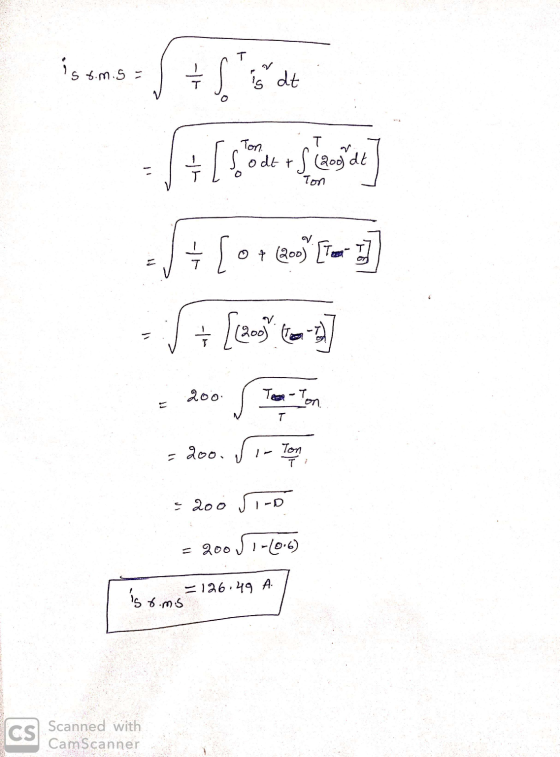 is r.m.s = √(1/T ∫₀ᵀ is² dt)
= √(1/T [∫₀^Ton 0 dt + ∫_Ton^T (200)² dt])
= √(1/T [0 + (200)² [T - Ton]])
= √(1/T [(200)² (T - Ton)])
= 200. √((T - Ton)/T)
= 200. √(1 - Ton/T)
= 200 √(1-D)
= 200 √(1-(0.6))
is r.ms = 126.49 A
CS Scanned with
CamScanner